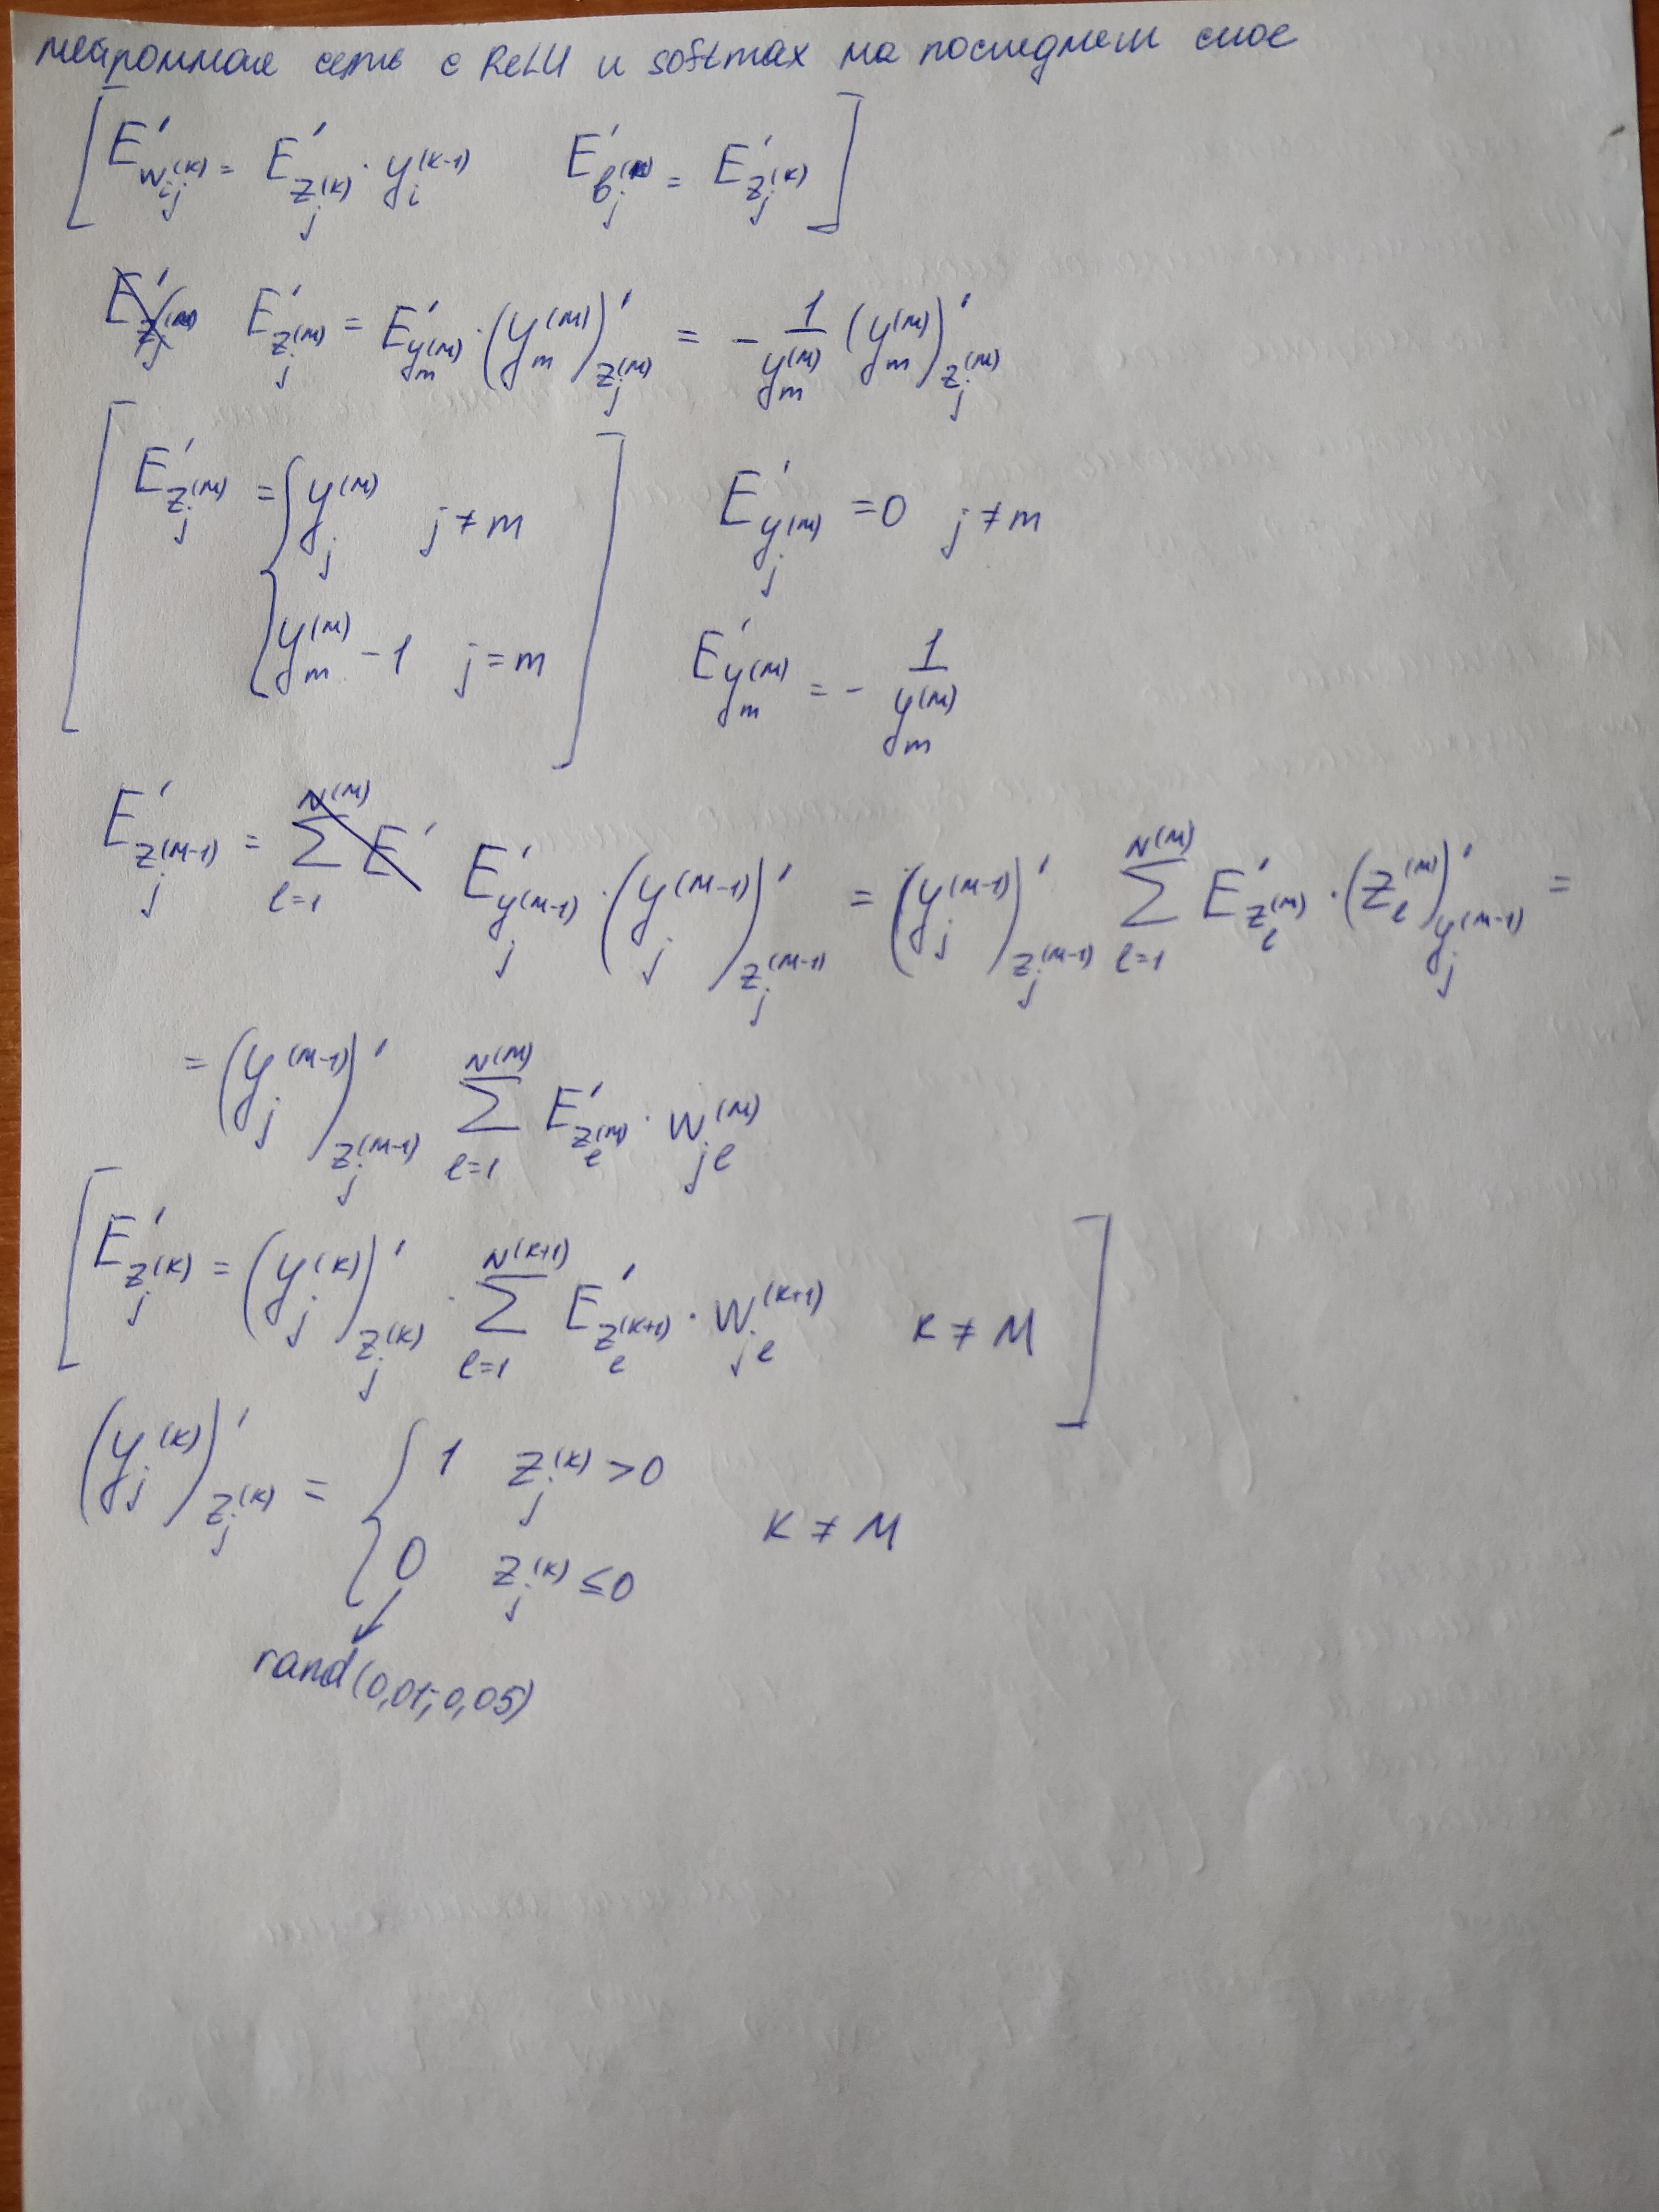 нейронная сеть с ReLU и softmax на последнем слое
[ E'_{w_{ij}^{(k)}} = E'_{z_j^{(k)}} · y_i^{(k-1)}   E'_{b_j^{(k)}} = E'_{z_j^{(k)}} ]
E'_{z_j^{(M)}} = E'_{y_m^{(M)}} · (y_m^{(M)})'_{z_j^{(M)}} = - 1/y_m^{(M)} (y_m^{(M)})'_{z_j^{(M)}}
[ E'_{z_j^{(M)}} = { y_j^{(M)}   j ≠ m
y_m^{(M)} - 1   j = m ]
E'_{y_j^{(M)}} = 0   j ≠ m
E'_{y_m^{(M)}} = - 1/y_m^{(M)}
E'_{z_j^{(M-1)}} = ∑_{l=1}^{N^{(M)}} E' E'_{y_j^{(M-1)}} · (y_j^{(M-1)})'_{z_j^{(M-1)}} = (y_j^{(M-1)})'_{z_j^{(M-1)}} ∑_{l=1}^{N^{(M)}} E'_{z_l^{(M)}} · (z_l^{(M)})'_{y_j^{(M-1)}} =
= (y_j^{(M-1)})'_{z_j^{(M-1)}} ∑_{l=1}^{N^{(M)}} E'_{z_l^{(M)}} · w_{jl}^{(M)}
[ E'_{z_j^{(k)}} = (y_j^{(k)})'_{z_j^{(k)}} · ∑_{l=1}^{N^{(k+1)}} E'_{z_l^{(k+1)}} · w_{jl}^{(k+1)}   k ≠ M ]
(y_j^{(k)})'_{z_j^{(k)}} = { 1   z_j^{(k)} > 0
0   z_j^{(k)} ≤ 0   k ≠ M
rand(0,01; 0,05)